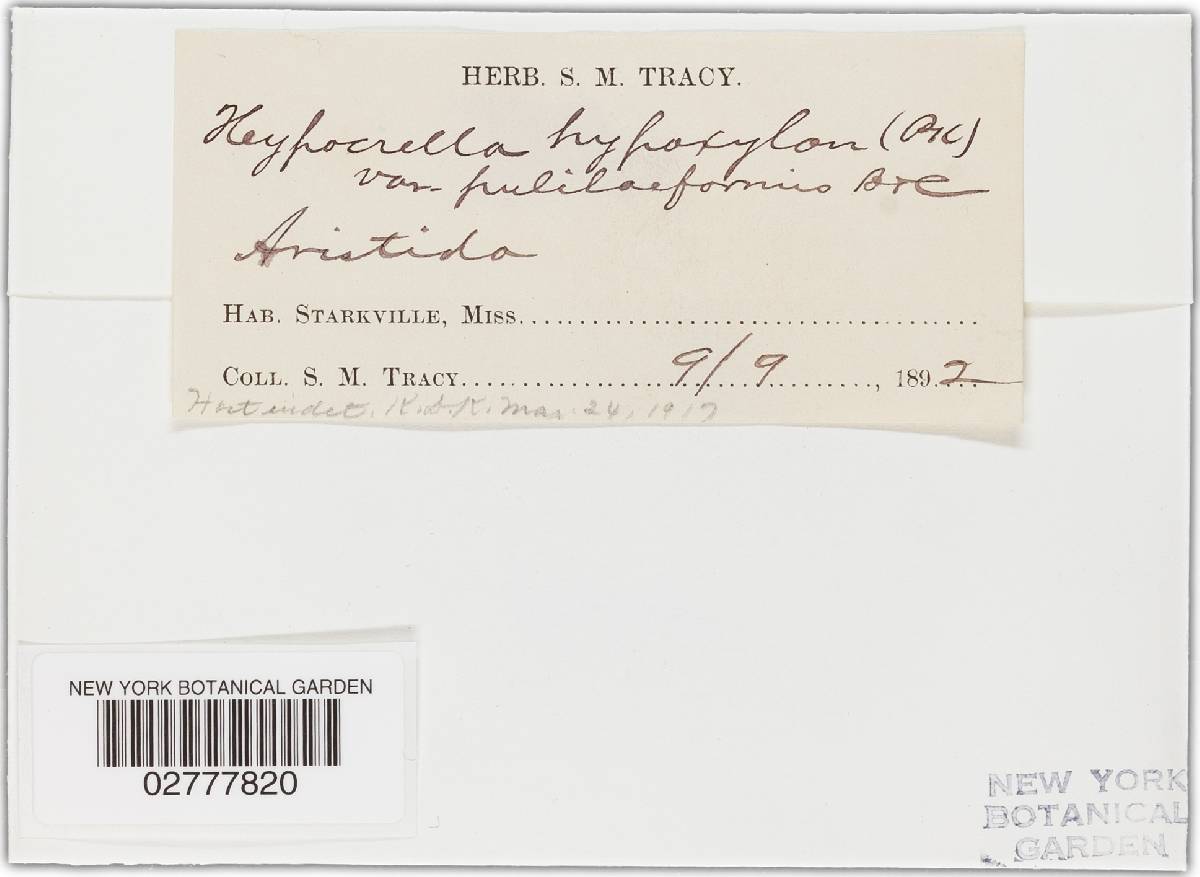 HERB. S. M. TRACY.
Hypocrella hypoxylon (Pk)
var. pulilaeformis B&C
Aristida
HAB. STARKVILLE, MISS.
COLL. S. M. TRACY. 9/9, 1892
Host indet. K.D.K. Mar. 24, 1917
NEW YORK BOTANICAL GARDEN
02777820
NEW YORK
BOTANICAL
GARDEN